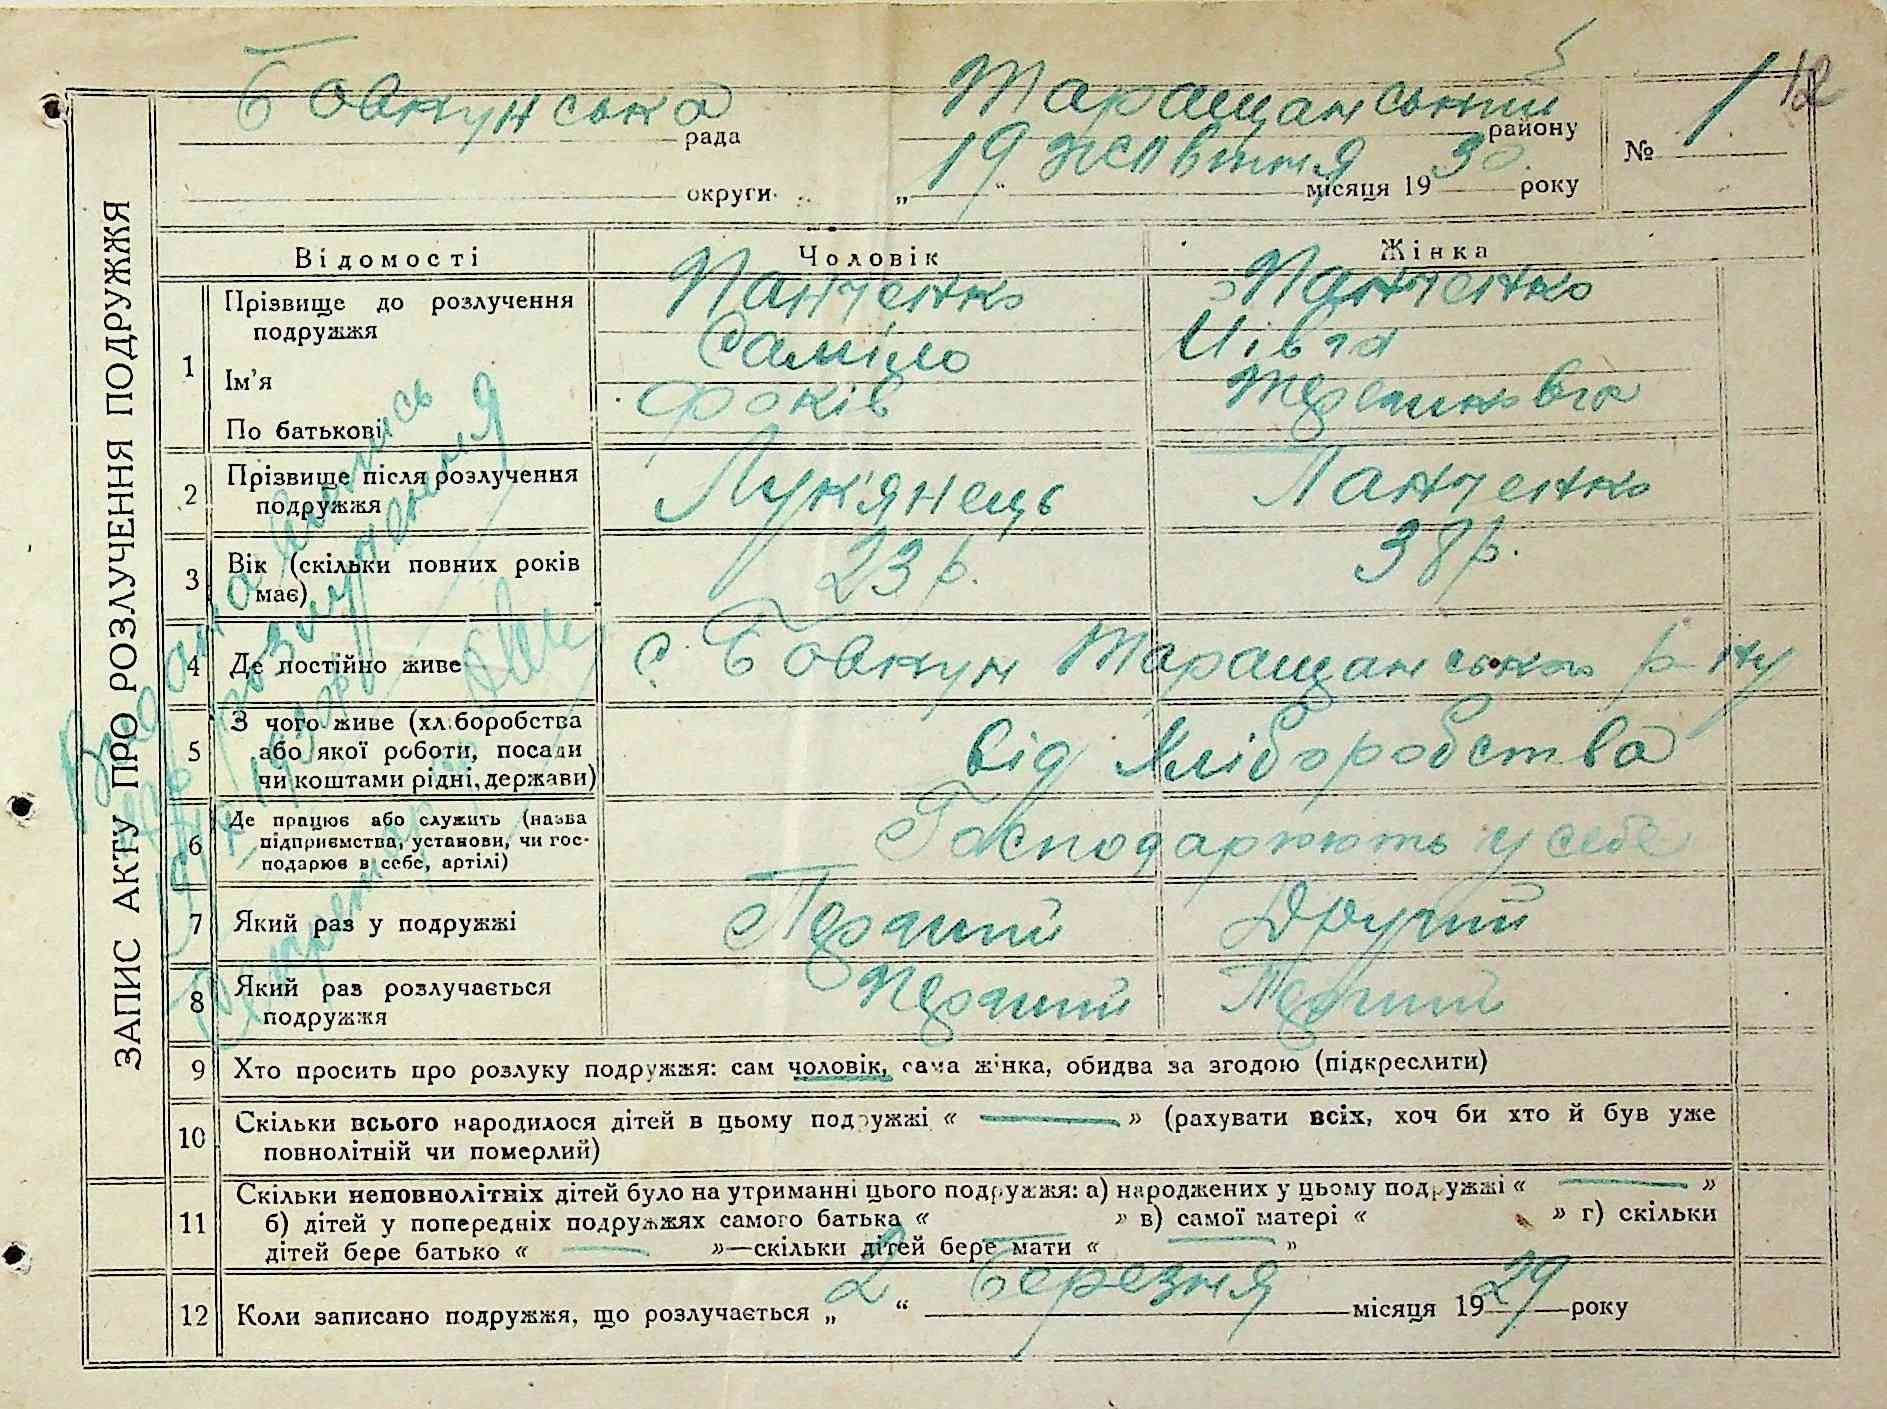 Бовкунська рада Таращанський району № 1 12
округи „19“ жовтня місяця 1930 року
ЗАПИС АКТУ ПРО РОЗЛУЧЕННЯ ПОДРУЖЖЯ
Відомості Чоловік Жінка
1 Прізвище до розлучення подружжя Панченко Панченко
Ім'я Саміло
По батькові Фоків
2 Прізвище після розлучення подружжя Лук'янець Панченко
3 Вік (скільки повних років має) 23 р. 38 р.
4 Де постійно живе с. Бовкун Таращанського р-ну
5 З чого живе (хліборобства
або якої роботи, посади
чи коштами рідні, держави) від хліборобства
6 Де працює або служить (назва
підприємства, установи, чи гос-
подарює в себе, артілі) Господарюють у себе
7 Який раз у подружжі Перший Другий
8 Який раз розлучається
подружжя Перший Перший
9 Хто просить про розлуку подружжя: сам чоловік, сама жінка, обидва за згодою (підкреслити)
10 Скільки всього народилося дітей в цьому подружжі « — » (рахувати всіх, хоч би хто й був уже
повнолітній чи померлий)
11 Скільки неповнолітніх дітей було на утриманні цього подружжя: а) народжених у цьому подружжі « — »
б) дітей у попередніх подружжях самого батька « » в) самої матері « » г) скільки
дітей бере батько « — »—скільки дітей бере мати « — »
12 Коли записано подружжя, що розлучається „2“ Березня місяця 1929 року
розлучення